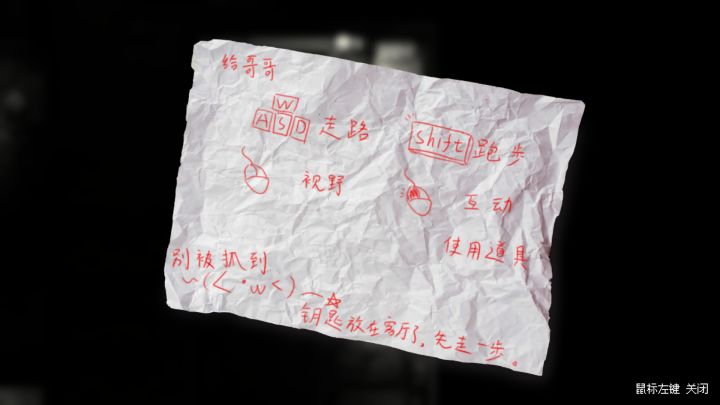 给哥哥
W
ASD 走路
shift 跑步
视野
互动
使用道具
别被抓到
~(<・ω<)—☆
钥匙放在客厅了，先走一步。
鼠标左键 关闭